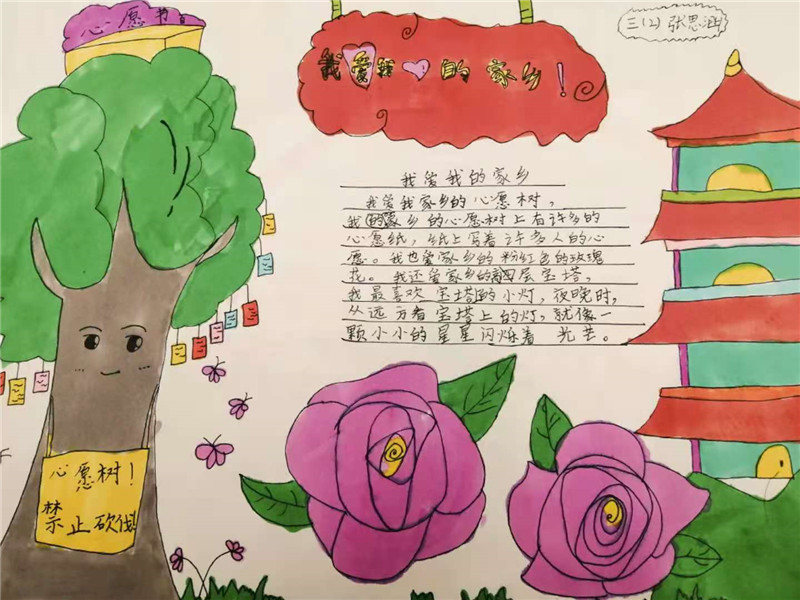 心愿
我爱我的家乡!
三(2)张思涵
我爱我的家乡
我爱我家乡的心愿树,
我的家乡的心愿树上有许多的
心愿纸,纸上写着许多人的心
愿。我也爱家乡的粉红色的玫瑰
花。我还爱家乡的层宝塔,
我最喜欢宝塔的小灯,夜晚时,
从远方看宝塔上的灯,就像一
颗小小的星星闪烁着 光芒。
心愿树!
禁止砍伐!